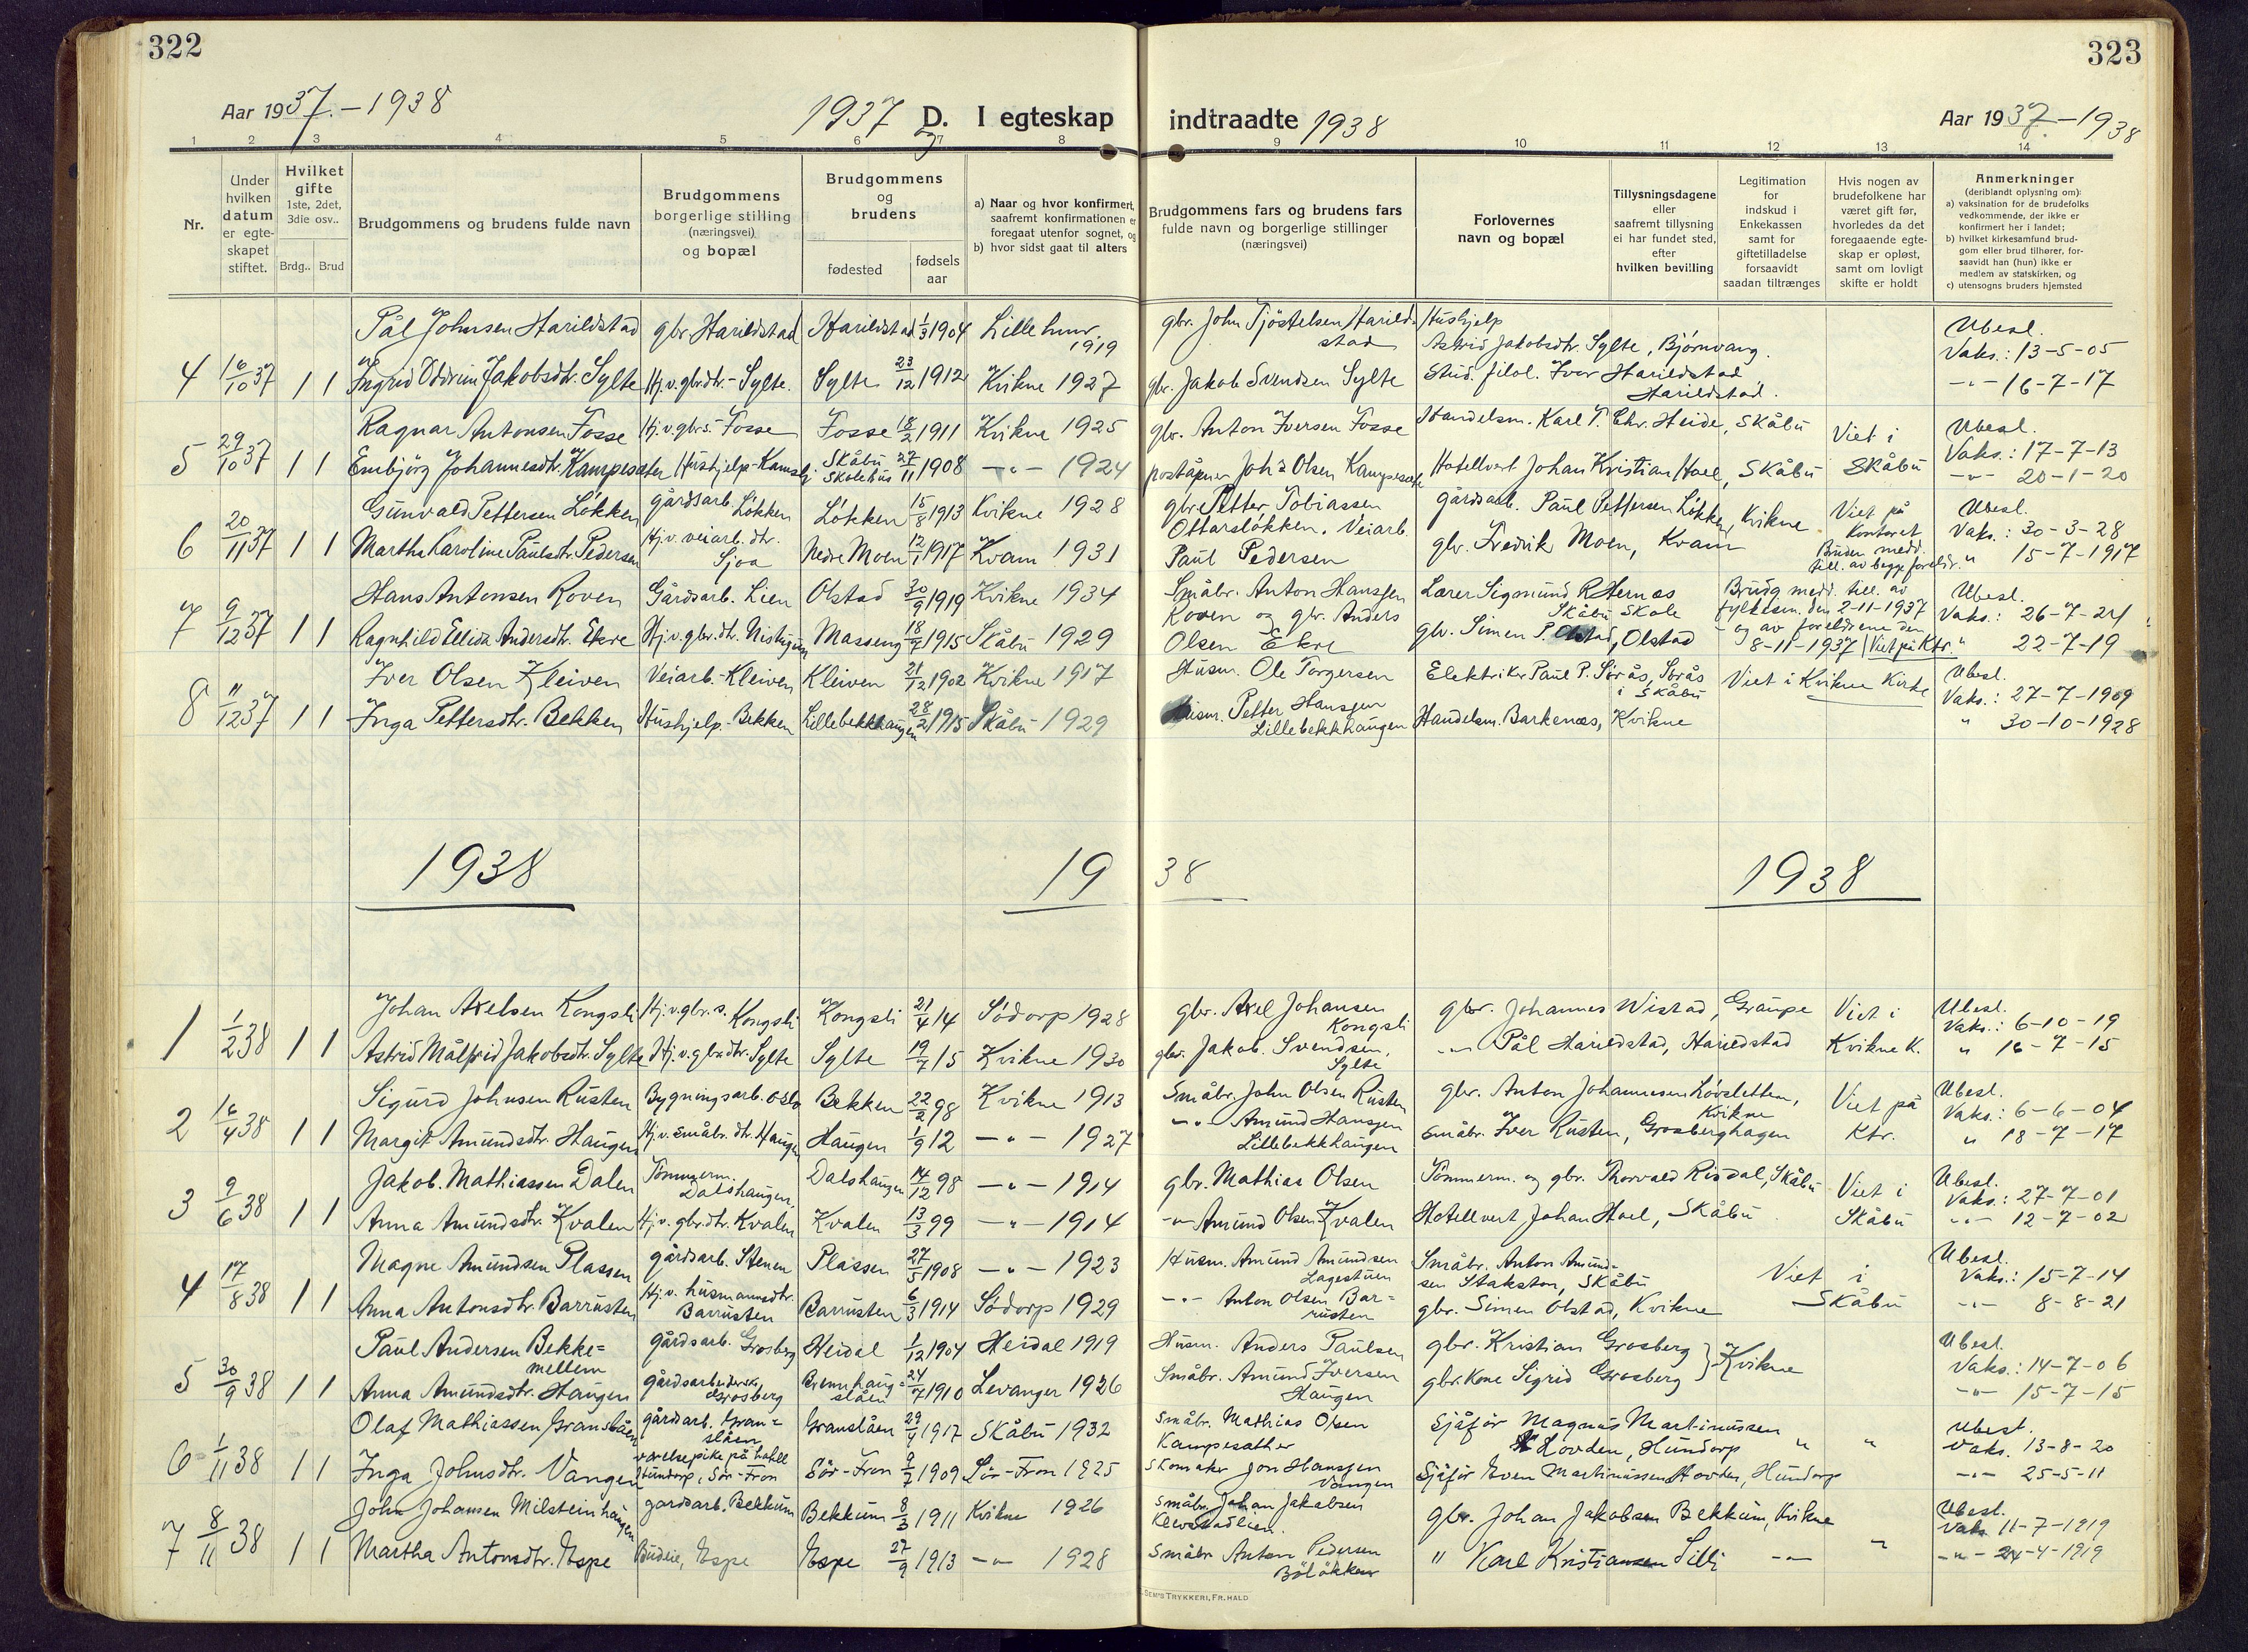 322
323
Aar 1937.-1938
1937 og D. I egteskap indtraadte 1938
Aar 1937.-1938
1 2 3 4 5 6 7 8 9 10 11 12 13 14
Nr.
Under hvilken datum er egteskapet stiftet.
Hvilket gifte 1ste, 2det, 3die osv..
Brdg.. Brud
Brudgommens og brudens fulde navn
Brudgommens borgerlige stilling (næringsvei) og bopæl
Brudgommens og brudens
fødested
fødsels aar
a) Naar og hvor konfirmert, saafremt konfirmationen er foregaat utenfor sognet, og
b) hvor sidst gaat til alters
Brudgommens fars og brudens fars fulde navn og borgerlige stillinger (næringsvei)
Forlovernes navn og bopæl
Tillysningsdagene eller saafremt tillysning ei har fundet sted, efter hvilken bevilling
Legitimation for indskud i Enkekassen samt for giftetilladelse forsaavidt saadan tiltrænges
Hvis nogen av brudefolkene har været gift før, hvorledes da det foregaaende egteskap er opløst, samt om lovligt skifte er holdt
Anmerkninger (deriblandt oplysning om):
a) vaksination for de brudefolks vedkommende, der ikke er konfirmert her i landet;
b) hvilket kirkesamfund brudgom eller brud tilhører, forsaavidt han (hun) ikke er medlem av statskirken, og
c) utensogns bruders hjemsted
Pål Johnsen Harildstad gbr. Harildstad Harildstad 1/3 1904 Lillehmr. 1919 gbr. John Tjöstelsen Harildstad Hushjelp Astrid Jakobsdtr. Sylte, Björnvang. Ubesl. Vaks.: 13-5-05
4 16/10 37 1 1 Ingrid Oddrun Jakobsdtr. Sylte Hj.v.gbr.dtr.- Sylte. Sylte 23/12 1912 Kvikne 1927 gbr. Jakob Svendsen Sylte Stud. filol. Iver Harildstad Harildstad. -"- 16-7-17
Ragnar Antonsen Fosse Hj.v.gbr.s. Fosse Fosse 18/2 1911 Kvikne 1925 gbr. Anton Iversen Fosse Handelsm. Karl T. Chr. Heide, Skåbu Viet i Ubesl. Vaks.: 17-7-13
5 29/10 37 1 1 Embjörg Johannesdtr. Kampesæter Hushjelp- Skåbu Skolehus 27/11 1908 -"- 1924 poståpner Joh's Olsen Kampesæter Hotellvert Johan Kristian Hoel, Skåbu Skåbu -"- 20-1-20
Gunvald Pettersen Lökken gårdsarb. Lökken Lökken 15/8 1913 Kvikne 1928 gbr. Petter Tobiassen Ottarslökken. Veiarb. gårdsarb. Paul Pettersen Lökken, Kvikne Viet på Kontoret Ubesl. Vaks.: 30-3-28
6 20/11 37 1 1 Martha Karoline Paulsdtr. Pedersen Hj.v. veiarb. dtr. Sjoa Nedre Moen 12/1 1917 Kvam 1931 Paul Pedersen gbr. Fredrik Moen, Kvam Bruden medd. till. av begge foreldr. " 15-7-1917
Hans Antonsen Roven Gårdsarb. Lien Olstad 30/9 1919 Kvikne 1934 Småbr. Anton Hanssen Roven og gbr. Anders Lærer Sigmund R. Hernæs Skåbu Skole Brudg. medd. till. av fylkesm. den 2-11-1937 Ubesl. Vaks.: 26-7-21
7 9/12 37 1 1 Ragnhild Ellida Andersdtr. Ekre Hj.v.gbr.dtr. Nistugun Masseng 18/7 1915 Skåbu 1929 Olsen Ekre gbr. Simen P. Olstad, Olstad - og av foreldrene den 8-11-1937 (Viet på Ktr. " 22-7-19
Iver Olsen Kleiven Veiarb.-Kleiven Kleiven 21/12 1902 Kvikne 1917 Husm. Ole Torgersen Elektriker Paul P. Sörås, Sörås i Skåbu Viet i Kvikne Kirke Ubesl. Vaks.: 27-7-1909
8 11/12 37 1 1 Inga Pettersdtr. Bekken Hushjelp. Bekken Lillebekkhaugen 28/2 1915 Skåbu 1929 Husm. Petter Hanssen Lillebekkhaugen Handelsm. Barkenæs, Kvikne " 30-10-1928
1938 1938 1938
Johan Axelsen Kongsli Hj.v.gbr.s. Kongsli Kongsli 21/4 14 Södorp 1928 gbr. Axel Johansen Kongsli gbr. Johannes Wistad, Graupe Viet i Ubesl. Vaks.: 6-10-19
1 1/2 38 1 1 Astrid Målfrid Jakobsdtr. Sylte Hj.v.gbrdtr. Sylte Sylte 19/7 15 Kvikne 1930 gbr. Jakob Svendsen, Sylte -"- Pål Harildstad, Harildstad Kvikne K. " 16-7-15
Sigurd Johnsen Rusten Bygningsarb. Oslo Bekken 22/2 98 Kvikne 1913 Småbr. John Olsen Rusten gbr. Anton Johannesen Lövsletten, Kvikne Viet på Ubesl. Vaks.: 6-6-04
2 16/4 38 1 1 Margit Amundsdtr. Haugen Hj.v. småbr. dtr. Haugen Haugen 1/9 12 -"- 1927 -"- Amund Hanssen Lillebekkhaugen småbr. Iver Rusten, Grosberghagen Ktr. " 18-7-17
Jakob Mathiassen Dalen Tömmerm. Dalshaugen, Dalshaugen 14/12 98 -"- 1914 gbr. Mathias Olsen Tömmerm. og gbr. Thorvald Risdal, Skåbu Viet i Ubesl. Vaks.: 27-7-01
3 9/6 38 1 1 Anna Amundsdtr. Kvalen Hj.v. gbr.dtr. Kvalen Kvalen 13/3 99 -"- 1914 -"- Amund Olsen Kvalen Hotellvert Johan Hoel, Skåbu Skåbu -"- 12-7-02
Magne Amundsen Plassen gårdsarb. Stenen Plassen 27/5 1908 -"- 1923 Husm. Amund Amundsen Lagestuen Småbr. Anton Amundsen Stakston, Skåbu Viet i Ubesl. Vaks.: 15-7-14
4 17/8 38 1 1 Anna Antonsdtr. Barrusten Hj.v. husmannsdtr. Barrusten Barrusten 6/3 1914 Södorp 1929 -"- Anton Olsen Bar=rusten gbr. Simen Olstad, Kvikne Skåbu -"- 8-8-21
Paul Andersen Bekke=mellem gårdsarb. Grosberg Heidal 1/12 1904 Heidal 1919 Husm. Anders Paulsen gbr. Kristian Grosberg } Kvikne Ubesl. Vaks.: 14-7-06
5 30/9 38 1 1 Anna Amundsdtr. Haugen gårdsarbeiderske, Grosberg Brennhaug=slåen 24/7 1910 Levanger 1926 Småbr. Amund Iversen Haugen gbr.kone Sigrid Grosberg -"- 15-7-15
Olaf Mathiassen Granslåen gårdsarb. Gran=slåen Granslåen 29/4 1917 Skåbu 1932 Småbr. Mathias Olsen Kampesæther Sjåför Magnus Martinussen Hovden, Hundorp " " Ubesl. Vaks. 13-8-20
6 1/11 38 1 1 Inga Johnsdtr. Vangen værelsepike på hotell Hundorp, Sör-Fron Sör-Fron 9/7 1909 Sör-Fron 1925 Skomaker Jon Hanssen Vangen Sjåför Even Martinussen Hovden, Hundorp -"- 25-5-11
John Johansen Milsteinhaugen gardsarb. Bekkum Bekkum 8/3 1911 Kvikne 1926 Småbr. Johan Jakobsen Klevstadlien. gbr. Johan Jakobsen Bekkum, Kvikne Ubesl. Vaks 11-7-1919
7 8/11 38 1 1 Martha Antonsdtr. Espe Budeie, Espe Espe 27/9 1913 -"- 1928 Småbr. Anton Pedersen Bölökken " Karl Kristiansen Lilli -"- " -"- 24-4-1919
SEM'S TRYKKERI, FR. HALD